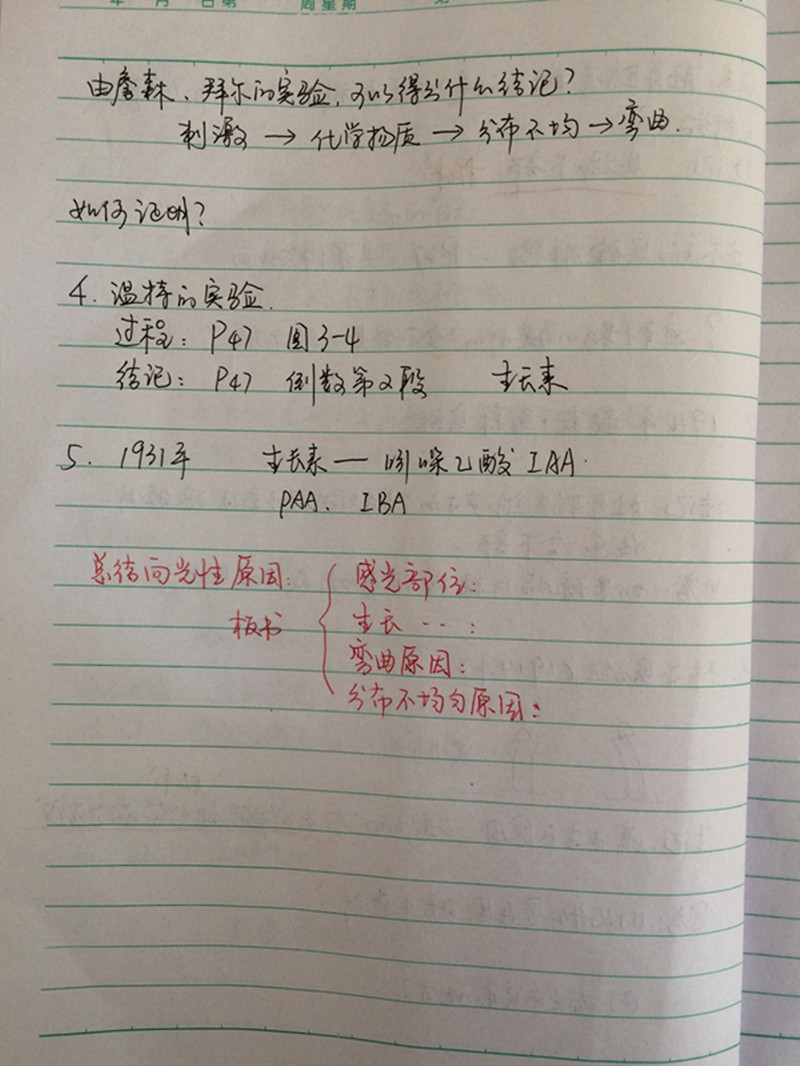 年 月 日第 周星期 第
由詹森、拜尔的实验,可以得出什么结论?
刺激 → 化学物质 → 分布不均 → 弯曲.
如何证明?
4. 温特的实验.
过程: P47 图3-4
结论: P47 倒数第2段 生长素
5. 1931年 生长素 — 吲哚乙酸 IAA.
PAA. IBA
总结向光性原因:
板书
感光部位:
生长 ‥ :
弯曲原因:
分布不均匀原因: